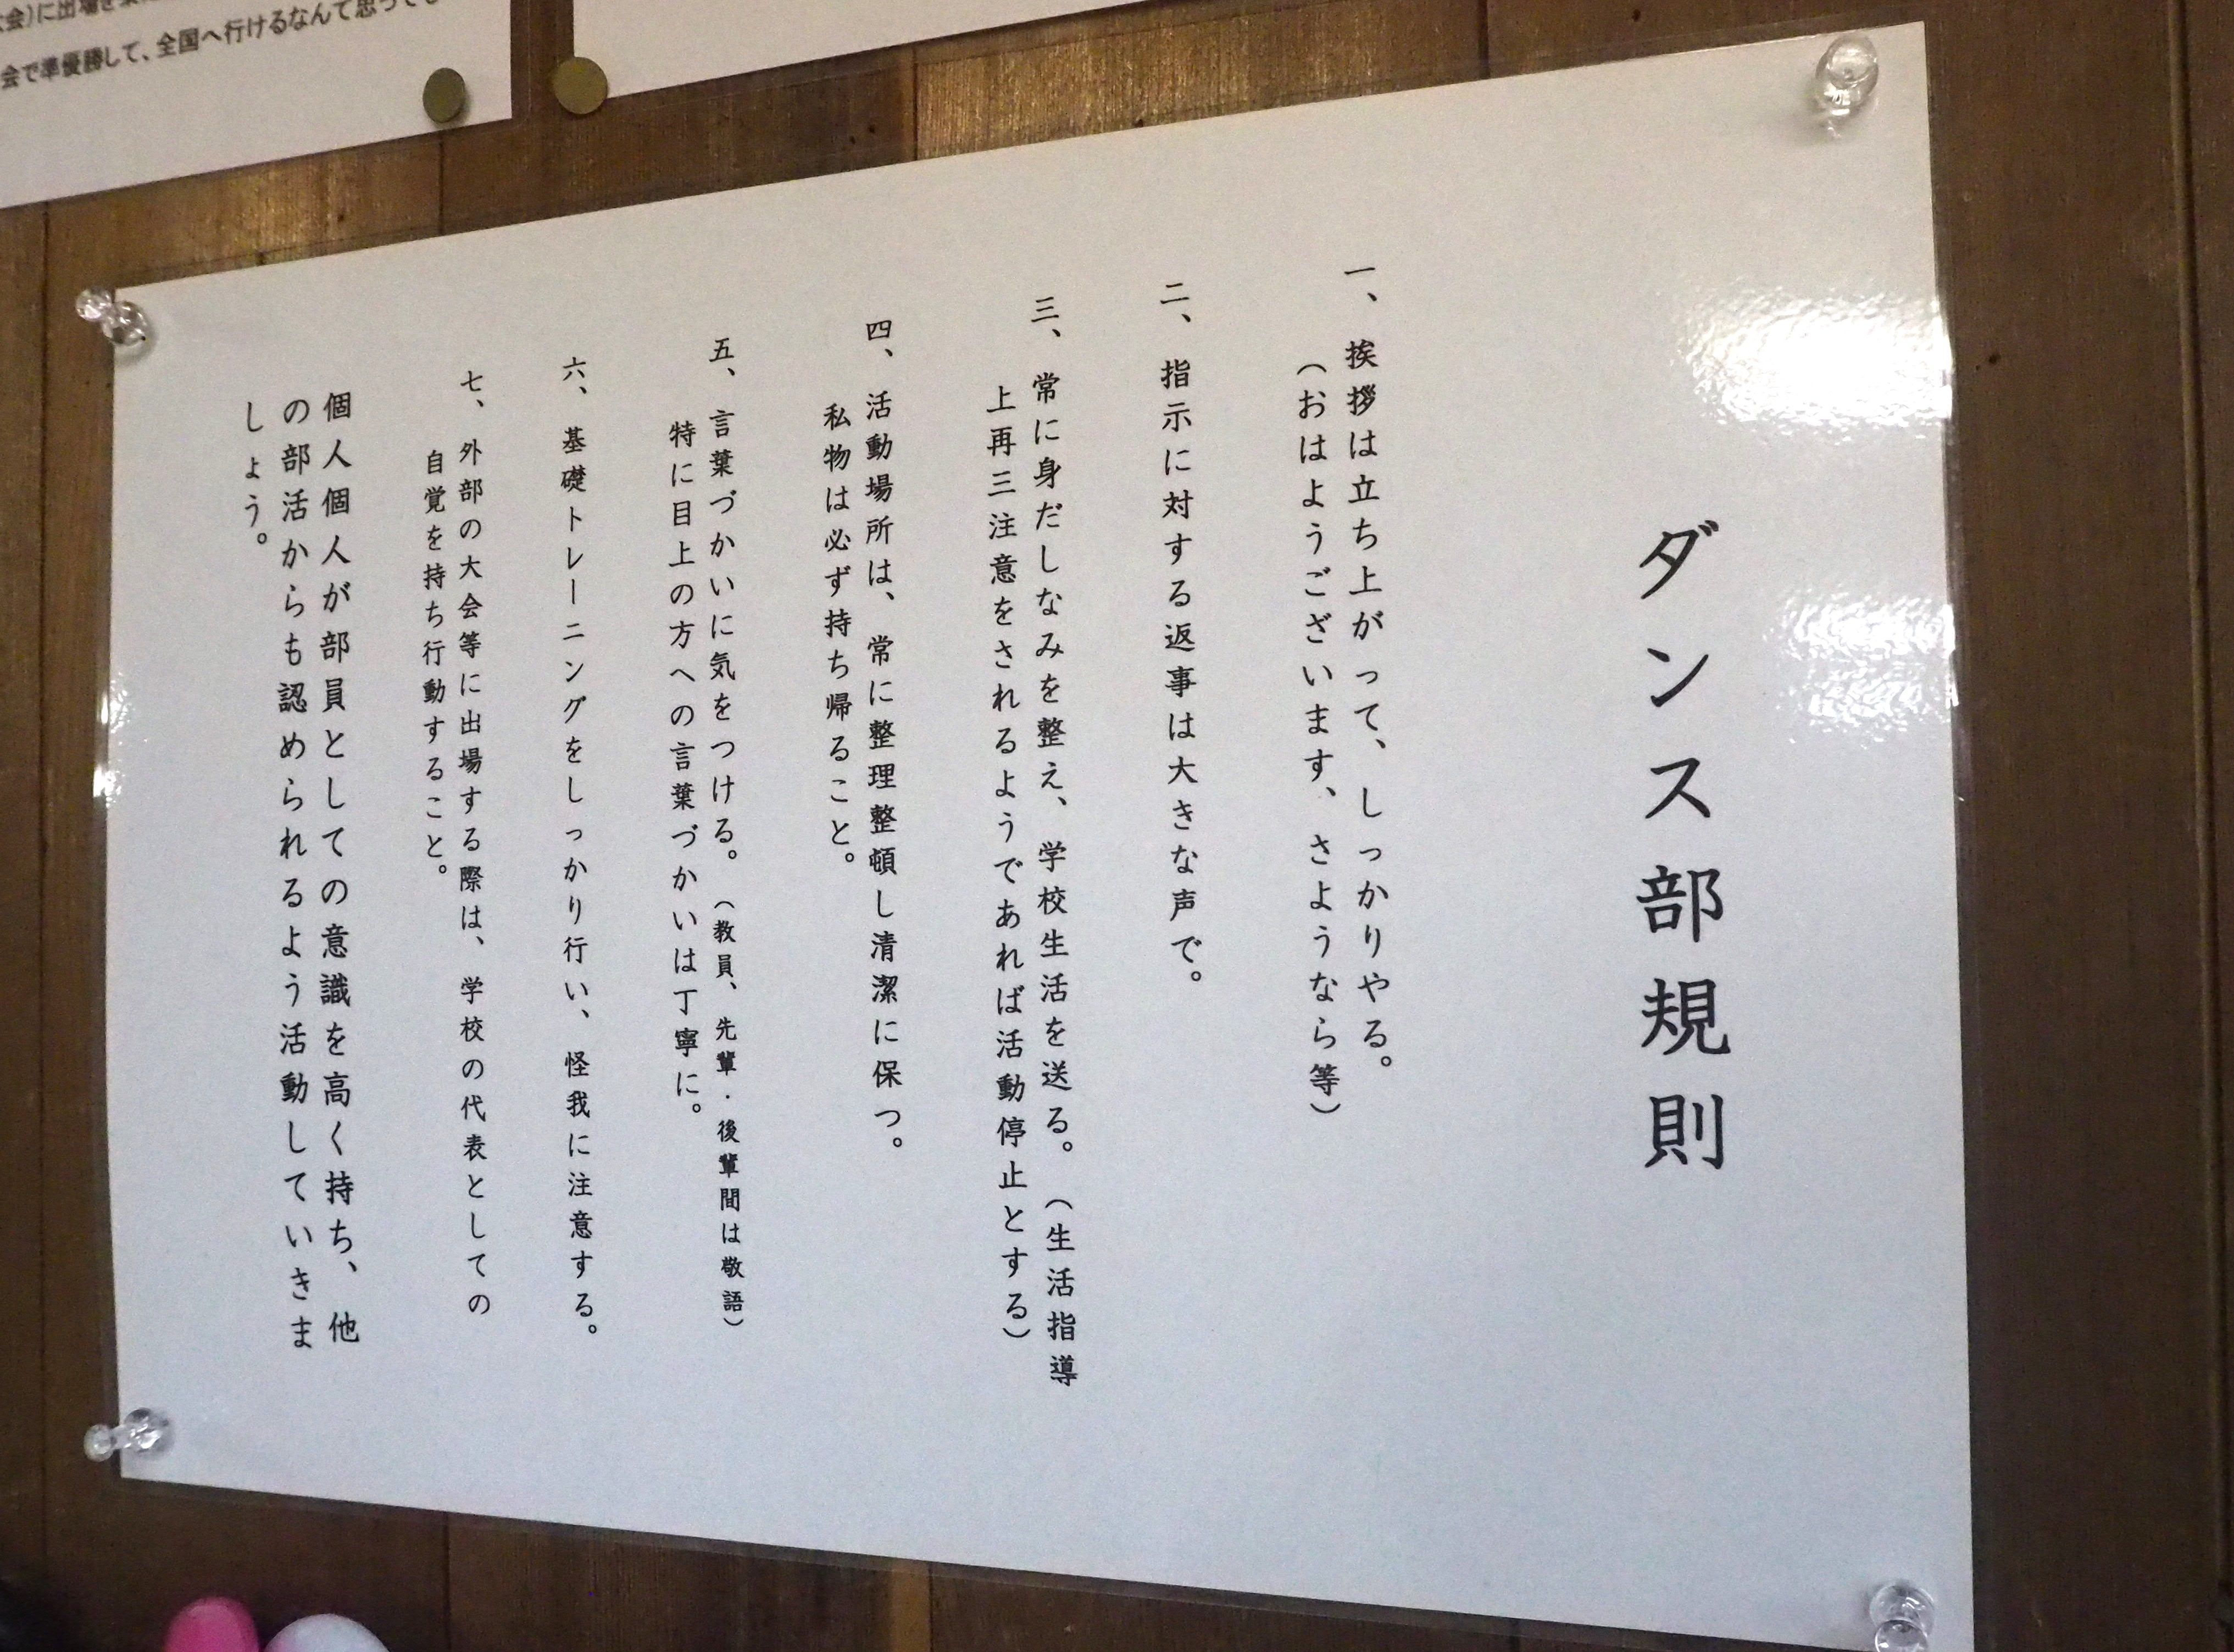 会で準優勝して、全国へ行けるなんて思って
ダンス部規則
一、挨拶は立ち上がって、しっかりやる。
（おはようございます、さようなら等）
二、指示に対する返事は大きな声で。
三、常に身だしなみを整え、学校生活を送る。（生活指導
上再三注意をされるようであれば活動停止とする）
四、活動場所は、常に整理整頓し清潔に保つ。
私物は必ず持ち帰ること。
五、言葉づかいに気をつける。（教員、先輩・後輩間は敬語）
特に目上の方への言葉づかいは丁寧に。
六、基礎トレーニングをしっかり行い、怪我に注意する。
七、外部の大会等に出場する際は、学校の代表としての
自覚を持ち行動すること。
個人個人が部員としての意識を高く持ち、他
の部活からも認められるよう活動していきま
しょう。